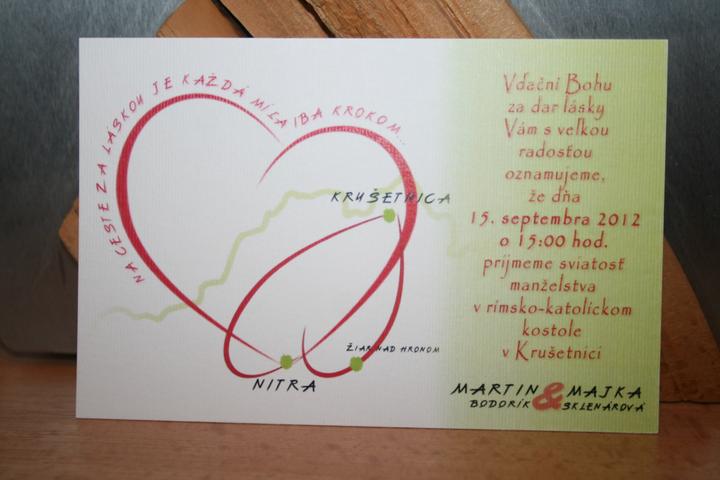 NA CESTE ZA LÁSKOU JE KAŽDÁ MÍĽA IBA KROKOM...
KRUŠETNICA
ŽIAR NAD HRONOM
NITRA
Vďační Bohu
za dar lásky
Vám s veľkou
radosťou
oznamujeme,
že dňa
15. septembra 2012
o 15:00 hod.
príjmeme sviatosť
manželstva
v rímsko-katolíckom
kostole
v Krušetnici
MARTIN & MAJKA
BODORÍK SKLENÁROVÁ